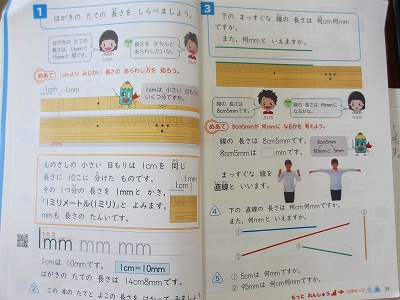 1
はがきの たての 長さを しらべましょう。
はがきの たての
長さは、14cmと
15cmの 間です。
長さを きちんと
あらわしたいな。
めあて 1cmより みじかい 長さの あらわし方を 知ろう。
1cm
1mm
1cmは 小さい 目もり
いくつ分ですか。
ものさしの 小さい 目もりは 1cmを 同じ
長さに 10こに 分けた ものです。
その 1つ分の 長さを 1mmと かき、
「1ミリメートル(1ミリ)」と よみます。
mmも 長さの たんいです。
1cm
1mm
1mm mm mm
1cmは 10mmです。
1cm=10mm
はがきの たての 長さは 14cm8mmです。
2
この 本の たてと よこの 長さを はかって みましょう。
3
下の まっすぐな 線の 長さは 何cm何mm
ですか。
また、何mmと いえますか。
線の 長さは
8cm5mmです。
線の 長さは
です。
めあて 8cm5mmが 何mmに なるかを 考えよう。
線の 長さは 8cm5mm
8cm5mmは mmです。
8cm5mm
80mmと 5mm
まっすぐな 線を
直線と いいます。
4
下の 直線の 長さは 何cm何mmですか。
また、何mmですか。
5
① 5cmは 何mmですか。
② 95mmは 何cm何mmですか。
もっと れんしゅう
129ページ
39